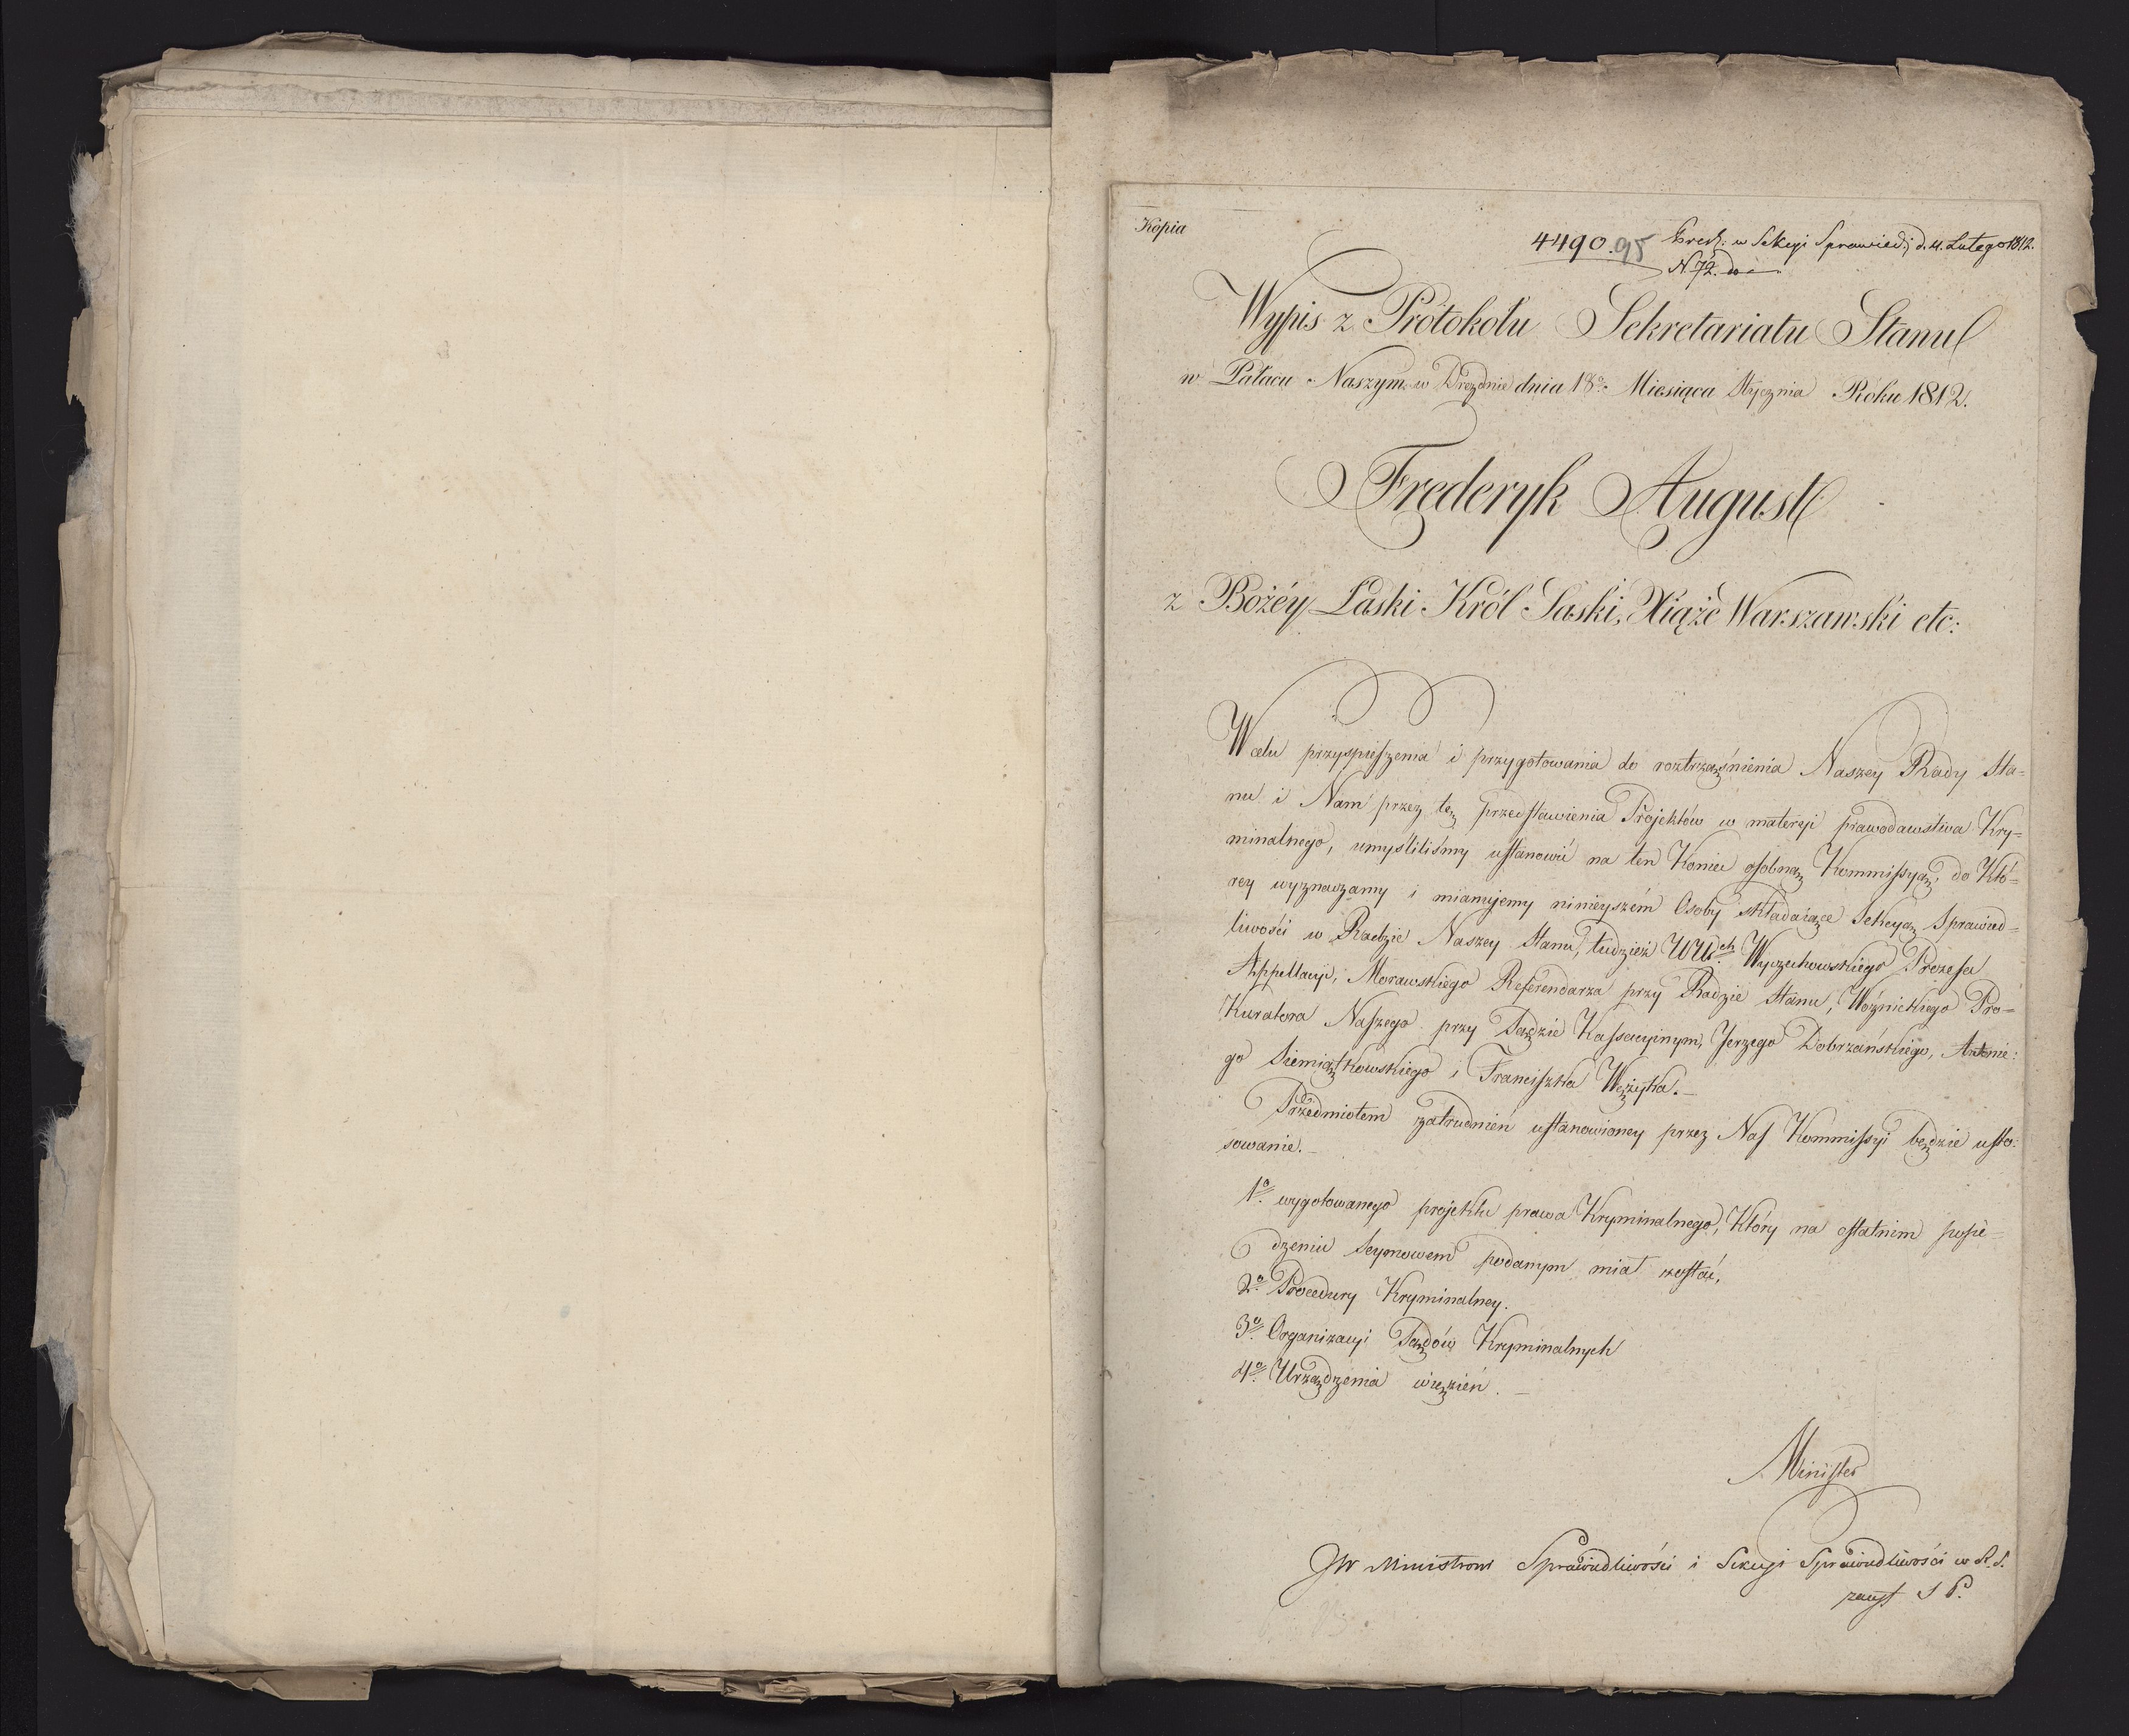 Kopia
4490. 95 Præs: w Sekcyi Sprawied: d. 4. Lutego 1812.
N. 72.
Wypis z Protokołu Sekretariatu Stanu
w Pałacu Naszym w Dreznie dnia 18º Miesiąca Stycznia Roku 1812.
Frederyk August
z Bożéy Łaski Król Saski, Xiąże Warszawski etc:
W celu przyspieszenia i przygotowania do roztrząśnienia Naszey Rady Sta=
nu i Nam przez tę przedstawienia Projektów w materyi prawodawstwa Kry=
minalnego, umyśliliśmy ustanowić na ten Koniec osobną Kommissyą, do Któ=
rey wyznaczamy i mianujemy ninieyszém Osoby składaiące Sekcyą Sprawied=
liwości w Radzie Naszey Stanu, tudzież WUr.ch Wyczechowskiego Prezesa
Appellacyi, Morawskiego Referendarza przy Radzie Stanu, Woźnickiego Pro=
Kuratora Naszego przy Sądzie Kassacyinym, Jerzego Dobrzańskiego, Antonie:
go Siemiątkowskiego i Franciszka Wężyka. _
Przedmiotem zatrudnień ustanowioney przez Nas Kommissyi będzie usto:
sowanie. _
1º wygotowanego projektu prawa Kryminalnego, Który na ostatnim posie=
dzeniu Seymowem podanym miał zostać,
2º Procedury Kryminalney.
3º Organizacyi Sądów Kryminalnych
4º Urządzenia więzień. _
Minister
JW Ministrowi Sprawiedliwości i Sekcyi Sprawiedliwości w R. S.